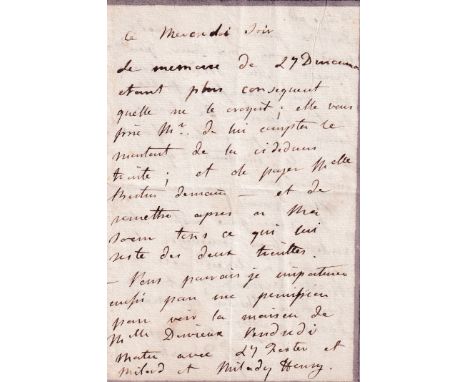 ce Mercredi Soir
Le memoire de LY
etant plus consequent
quelle ne le croyoit; elle vous
prie Mr. de lui compter le
montant de la cidessus
traitte; et de payer Melle
demain - et de
remettre apres a Moi
tous ce qui lui
reste des deux traittes.
- Vous pourrois je importuner
aussi pour une permission
pour voir la maison de
Melle Devieux Vendredi
Matin avec LY et
Milord et Milady Henry.